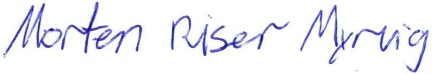 Morten Riser Myrvig